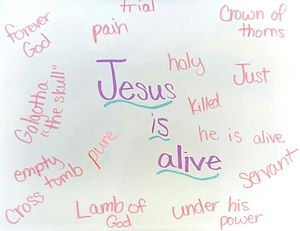 trial
forever
God
pain
Crown of
thorns
holy
Just
Jesus
Golgotha
"the skull"
killed
is
he is alive
pure
alive
empty
tomb
servant
cross
Lamb of
God
under his
power